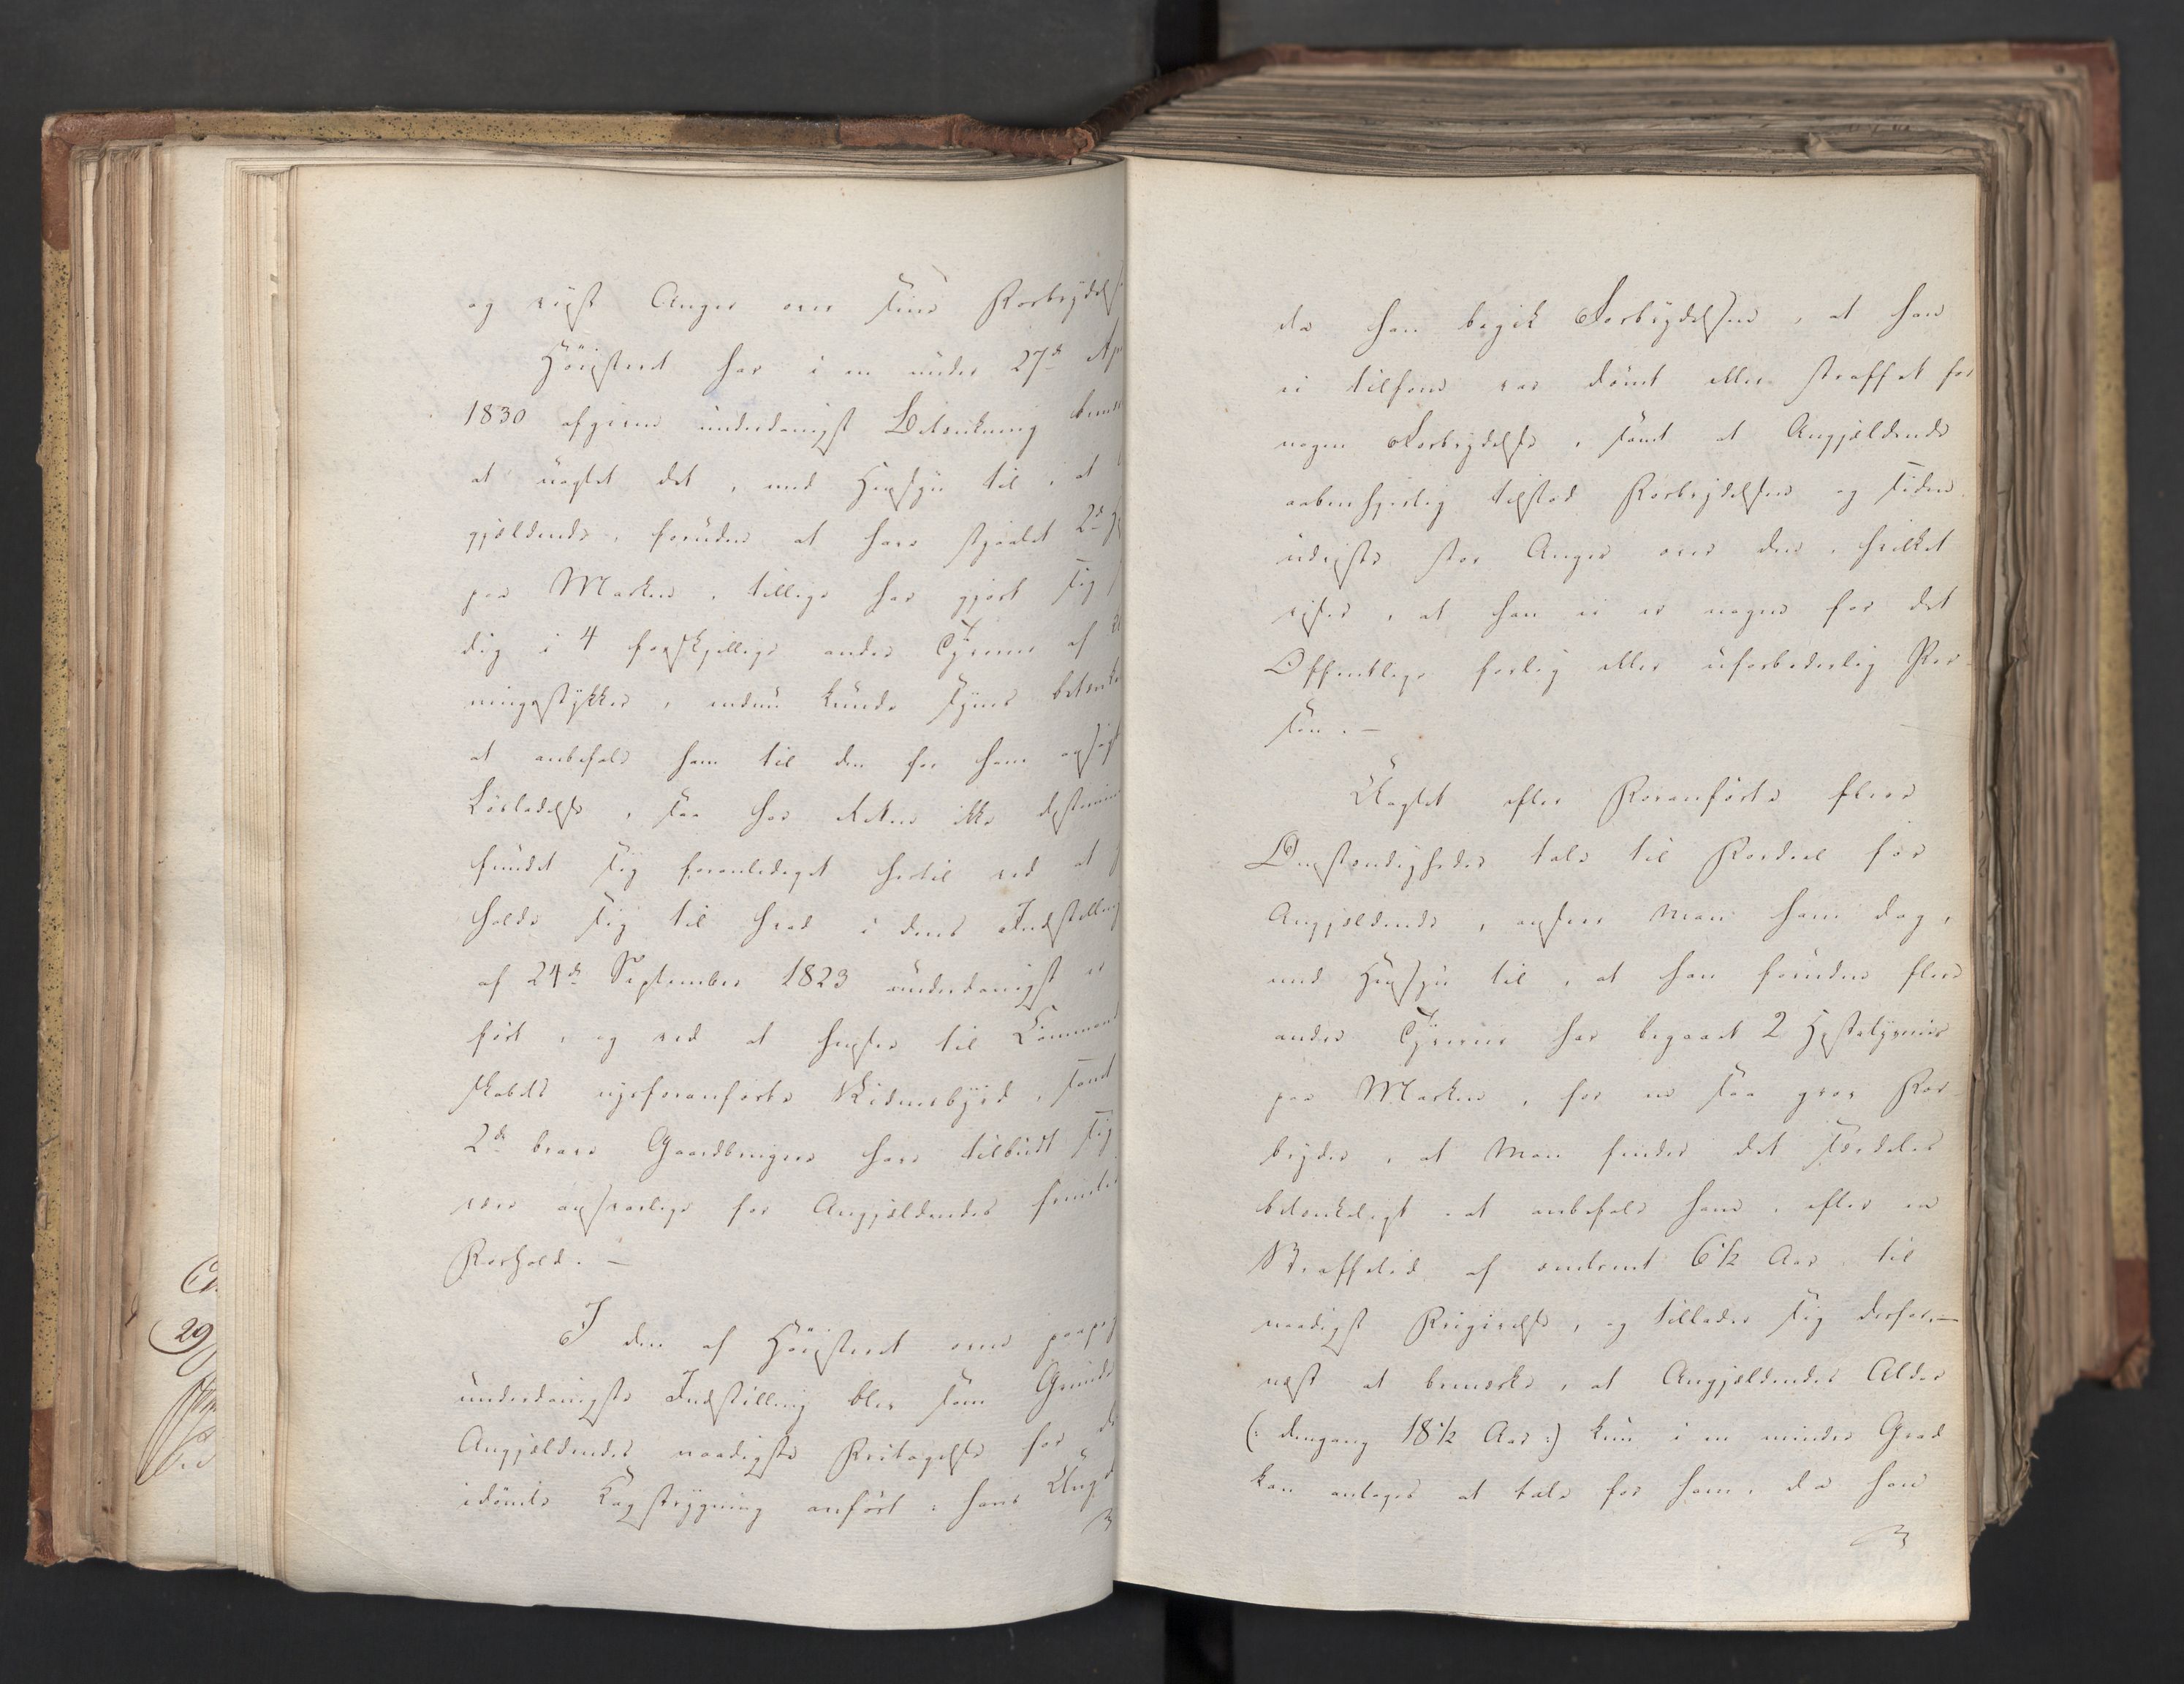 og viist Anger over sine Forbrydels
Höiesteret har i en under 27de Ap
1830 afgiven underdanigst Betænkning bemær
at uagtet det, med Hensyn til, at
gjældende, foruden at have stjaalet 2de
paa Marken, tillige har gjort sig
dig i 4 forskjellige andre Tyverier af
ningsstykker, endnu kunde synes betænke
at anbefale ham til den for ham ansögt
Lösladelse, saa har Retten ikke destomin
fundet sig foranlediget hertil ved at
holde sig til hvad i dens Indstilling
af 24de September 1823 underdanigst er
fört, og ved at henses til Commend
skabets nysforanförte Vidnesbyrd, samt
2de brave Gaardbrugere have tilbudt sig
være ansvarlige for Angjældendes
Forhold. —
I den af Höiesteret oven paapeg
underdanigste Indstilling blev som Grunde
Angjældendes naadigste Fritagelse for d
idömte Kagstrygning anfört: hans Ungd
da han begik Forbrydelsen, at han
ei tilforn var dömt eller straffet for
nogen Forbrydelse, samt at Angjældende
aabenhjertig tilstod Forbrydelsen og siden
udviste stor Anger over den, hvilket
viser, at han ei er nogen for det
Offentlige farlig eller uforbederlig Per-
son. —
Uagtet efter Foranförte flere
Omstændigheder tale til Fordeel for
Angjældende, anseer man ham dog,
med Hensyn til, at han foruden flere
andre Tyverier har begaaet 2 Hestetyverier
paa Marken, for en saa grov For-
bryder, at man finder det særdeles
betænkeligt at anbefale ham, efter en
Straffetid af omtrent 6½ Aar til
naadigst Frigivelse, og tillader sig derhos —
næst at bemærke, at Angjældendes Alder
(: dengang 18½ Aar :) kun i en mindre Grad
kan antages at tale for ham, da han